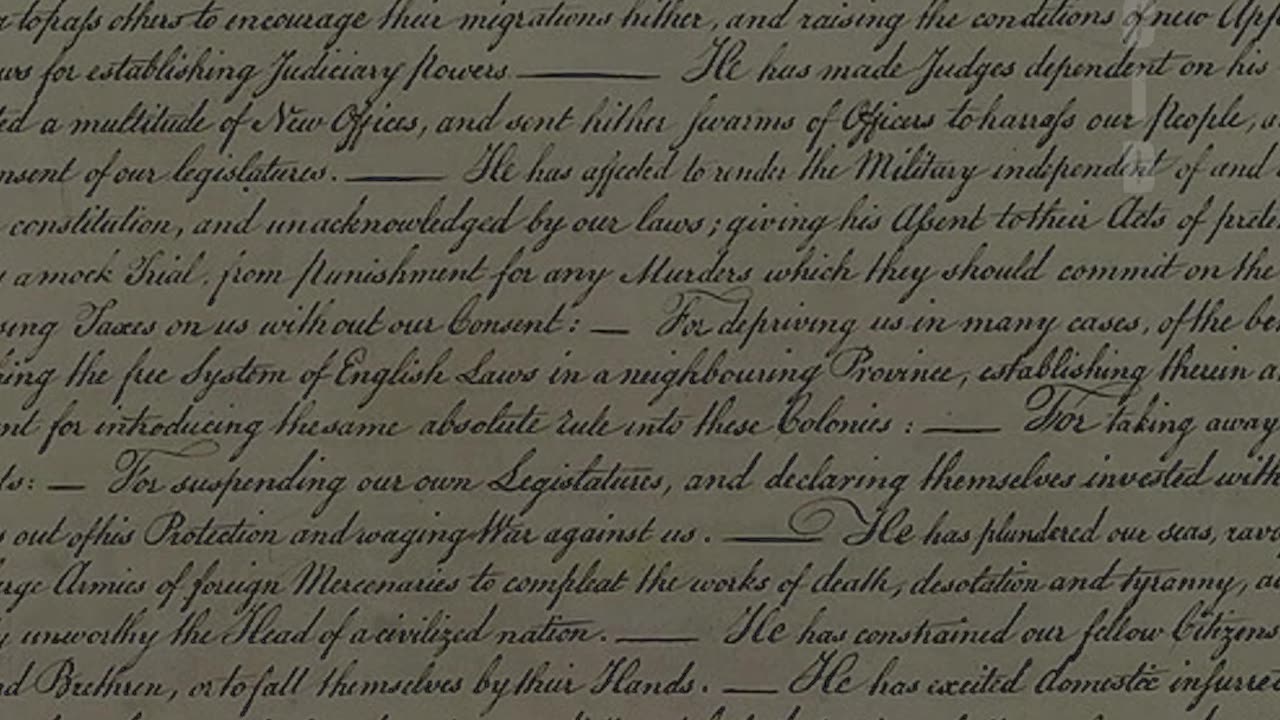 to pass others to encourage their migrations hither, and raising the conditions of new App
ws for establishing Judiciary powers. — He has made Judges dependent on his
ted a multitude of New Offices, and sent hither swarms of Officers to harrass our People,
nsent of our legislatures. — He has affected to render the Military independent of and
constitution, and unacknowledged by our laws; giving his Assent to their Acts of prete
a mock Trial, from Punishment for any Murders which they should commit on the
sing Taxes on us without our Consent: — For depriving us in many cases, of the be
hing the free System of English Laws in a neighbouring Province, establishing therein a
nt for introducing the same absolute rule into these Colonies : — For taking away
ts: — For suspending our own Legislatures, and declaring themselves invested with
s out of his Protection and waging War against us. — He has plundered our seas, rav
arge Armies of foreign Mercenaries to compleat the works of death, desolation and tyranny, a
y unworthy the Head of a civilized nation. — He has constrained our fellow Citizens
nd Brethren, or to fall themselves by their Hands. — He has excited domestic insurre